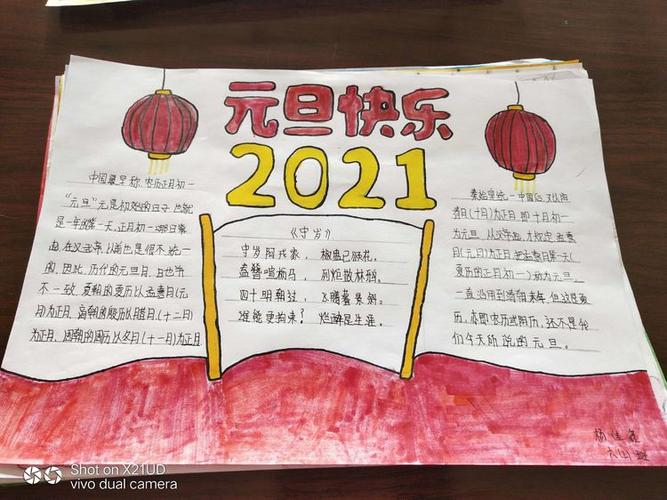 元旦快乐
2021
中国最早称农历正月初一
"元旦"元是初始的日子也就
是一年的第一天，正月初一哪日算
由在汉武帝以前也是很不统一
的，因此，历代的元旦月、日也并
不一致，夏朝的夏历以孟喜月(元
)为正月，商朝的殷历以腊月(十二月)
为正月，周朝的周历以冬月(十一月)为正月
《守岁》
守岁阿戎家，椒盘已颂花。
盍簪喧枥马，列炬散林鸦。
四十明朝过，飞腾暮景斜。
谁能更拘束？烂醉是生涯。
秦始皇统一中国后，又以阳
春月(十月)为正月即十月初一
为元旦，从汉武帝起，才规定孟喜
月(元月)为正月把孟喜月第一天(
夏历的正月初一)称为元旦，
一直沿用到清朝末年但这是夏
历，亦即农历或阴历，还不是我
们今天所说的元旦。
杨佳鑫
六(4)班
Shot on X21UD
vivo dual camera